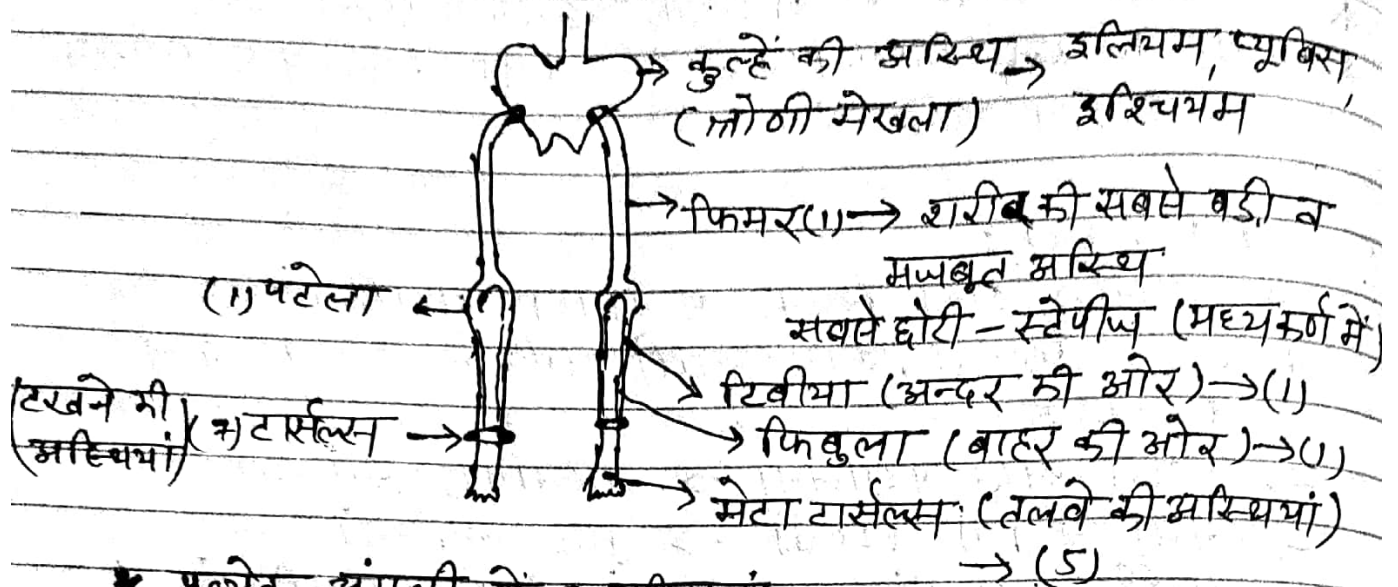 कुल्हें की अस्थि → इलियम, प्यूबिस,
(श्रोणी मेखला) इश्चियम
फिमर(1) → शरीर की सबसे बडी व
मजबूत अस्थि
(1) पटेला
सबसे छोटी - स्टेपीज (मध्यकर्ण में)
टिबीया (अन्दर की ओर) → (1)
(टखने की अस्थियां) (7) टार्सल्स
फिबुला (बाहर की ओर) → (1)
मेटा टार्सल्स (तलवे की अस्थियां)
→ (5)